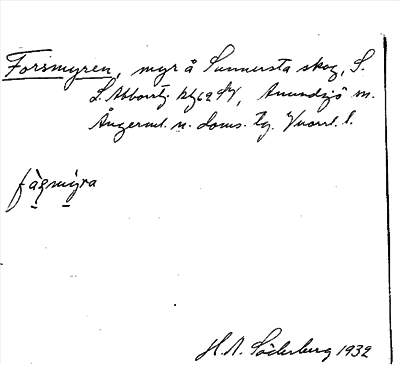 Forsmyren, myr å Sunnersta skog, S.
S. Abborrtj. Anundsjö m.
Ångerml. n. doms. tg. Vnorrl. l.
fàgmýra
H. A. Söderberg 1932